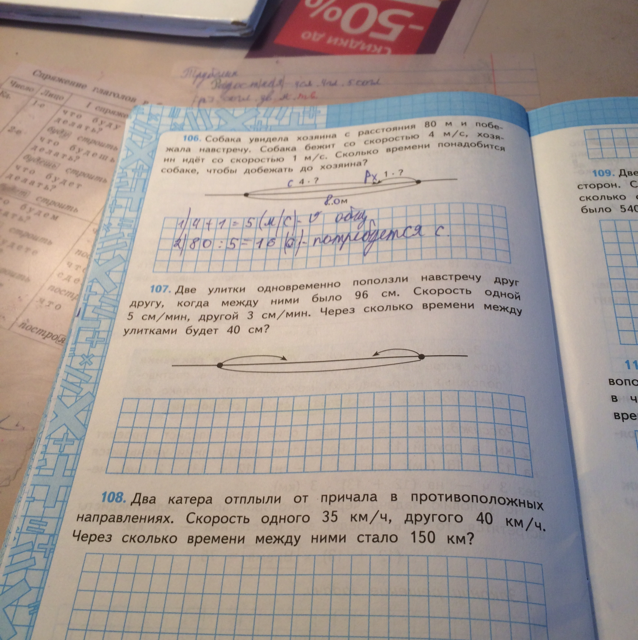 СКИДКИ ДО
-50%
Спряжение глаголов
Число Лицо I спряж
1-е что буду
делать?
2-е что будешь
делать?
что будет
106. Собака увидела хозяина с расстояния 80 м и побе-
жала навстречу. Собака бежит со скоростью 4 м/с, хозя-
ин идёт со скоростью 1 м/с. Сколько времени понадобится
собаке, чтобы добежать до хозяина?
С 4 - ? 1 - ?
80м
1) 4 + 1 = 5 (м/с) - υ общ
2) 80 : 5 = 16 (с) - потребуется с
107. Две улитки одновременно поползли навстречу друг
другу, когда между ними было 96 см. Скорость одной
5 см/мин, другой 3 см/мин. Через сколько времени между
улитками будет 40 см?
108. Два катера отплыли от причала в противоположных
направлениях. Скорость одного 35 км/ч, другого 40 км/ч.
Через сколько времени между ними стало 150 км?
109. Две
сторон. С
сколько
было 540
11
вопо
в ч
вре